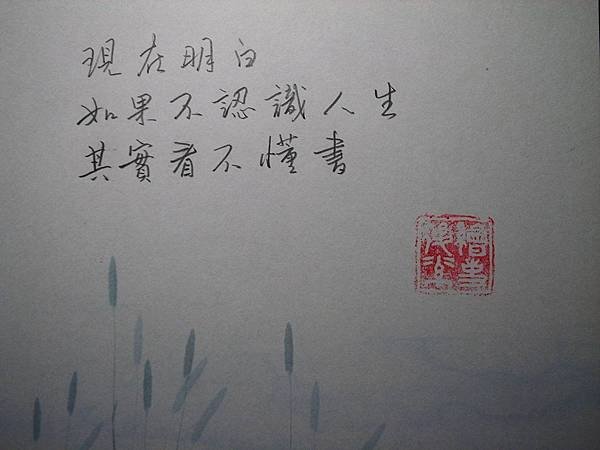 現在明白
如果不認識人生
其實看不懂書